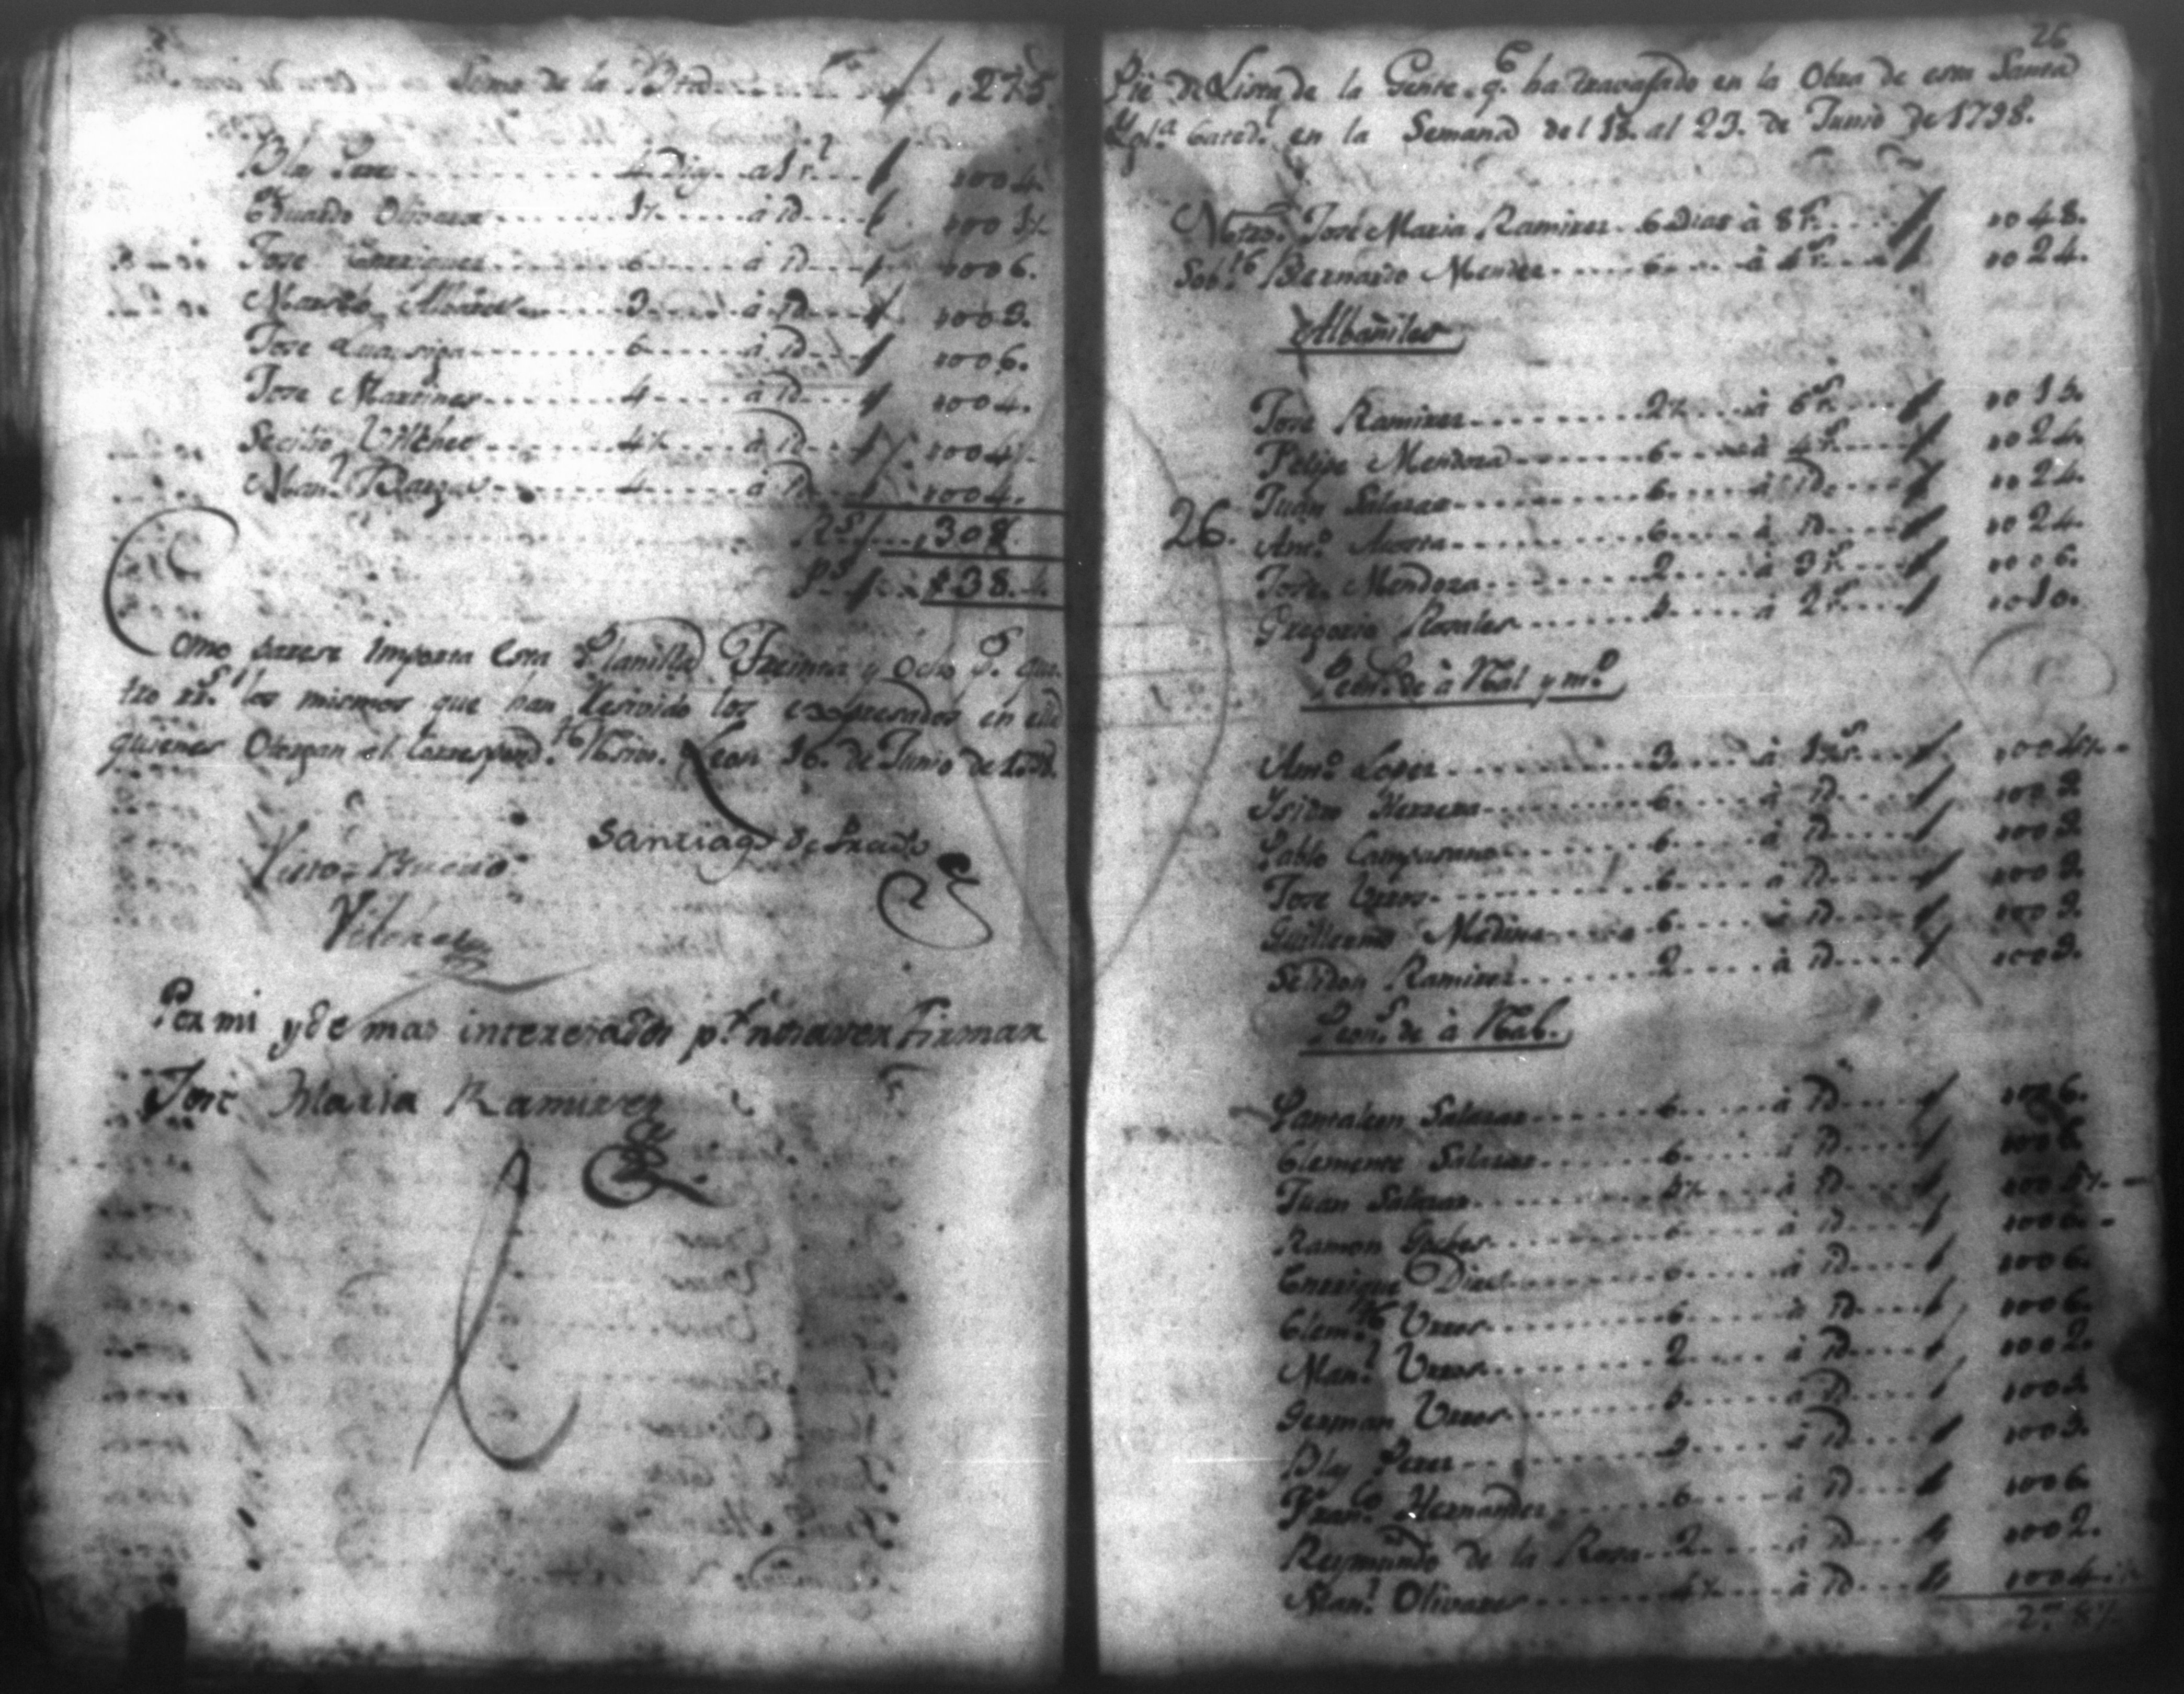 Suma de la 275.
Blas Perez 4 Dias a 1 r.l 4.
Eduardo Olivares 1½ à id 1½
Jose Enrriquez 6 à id 6.
3 à id 3.
Jose 6 à id 6.
Jose Martines 4 à id 4.
Vilches 4½ à id 4½
Man.l 4 à id 4.
R.s 308.
P.s 38.4
Como parese importa esta Planilla Treinta y ocho p.s qua
tro rr.s los mismos que han resivido los expresados en ella
quienes Otorgan el correspond.te Resivo. Leon 16. de Junio de
Santiago de Prado
Visto Bueno
Vilches
Por mi y de mas interesados p.r no saver firmar
Jose Maria Ramirez
26
Pie de Lista de la Gente q.e ha travajado en la Obra de esta Santa
Ygl.a Cated.l en la Semana del 18. al 23. de Junio de 1798.
Mtro. José Maria Ramirez 6 Dias à 8 r.s 48.
Sob.te Bernardo Mendez 6 à 4 r.s 24.
Albañiles
José Ramirez 2½ à 6 r.s 15.
Felipe Mendoza 6 à 4 r.s 24.
Juan Salazar 6 à id 24.
26. Ant.o 6 à id 24.
José Mendoza 2 à 3 r.s 6.
Gregorio Rosales 5 à 2 r.s 10.
Peon.s de à Real y m.o
Ant.o Lopez 3 à 1½ r.s 4½
Isidro Herrera 6 à id 9
Pablo Campusano 6 à id 9
Jose Urros 6 à id 9
Guillermo Medina 6 à id 9.
Sendon Ramirez 2 à id 3.
Peon.s de à Real.
Pantaleon Salazar 6 à id 6.
Clemente Salazar 6 à id 6
Juan Salazar 5½ à id 5½
Ramon 6 à id 6
Enrrique Diaz 6 à id 6.
Clem.te Urros 6 à id 6.
Man.l Urros 2 à id 2.
German Urros à id
Blas Perez 3 à id 3.
Fran.co Hernandez 6 à id 6.
Reymundo de la Rosa 2 à id 2.
Man.l Olivares 4½ à id 4½